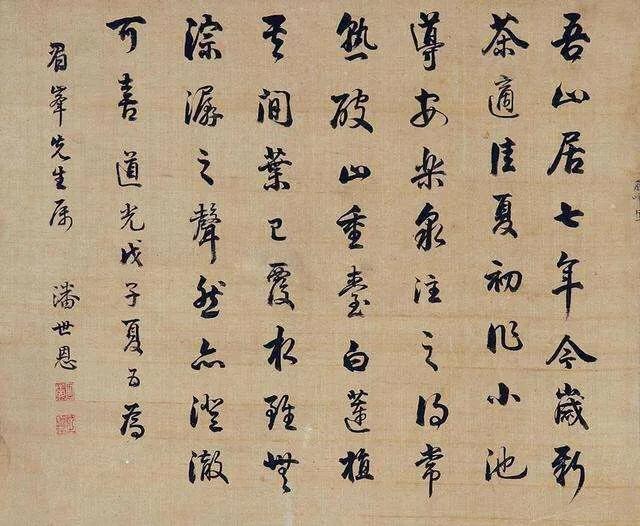 吾山居七年今歲新
茶適佳夏初作小池
導安樂泉注之得常
熟破山重臺白蓮植
其間葉已覆水雖無
淙潺之聲然亦澄澈
可喜道光戊子夏五為
眉峯先生属 潘世恩